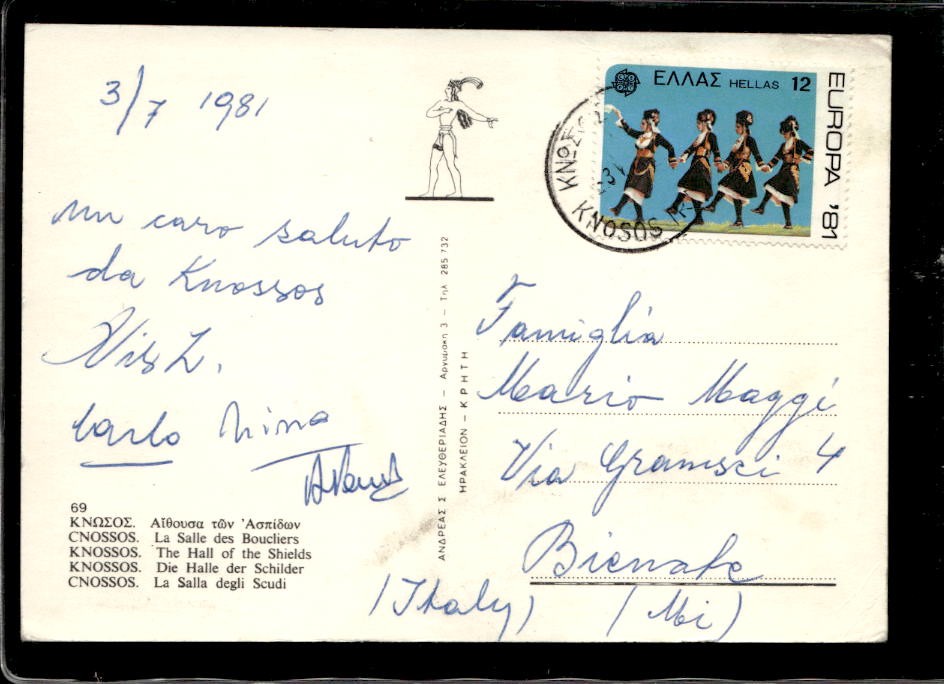 3/7 1981
un caro saluto
da Knossos
Carlo Nina
69
ΚΝΩΣΟΣ. Αἴθουσα τῶν Ἀσπίδων
CNOSSOS. La Salle des Boucliers
KNOSSOS. The Hall of the Shields
KNOSSOS. Die Halle der Schilder
CNOSSOS. La Salla degli Scudi
ΑΝΔΡΕΑΣ Σ ΕΛΕΥΘΕΡΙΑΔΗΣ – Αργυράκη 3 – Τηλ 285 732
ΗΡΑΚΛΕΙΟΝ – ΚΡΗΤΗ
ΕΛΛΑΣ HELLAS 12
EUROPA '81
KNOSOS
Famiglia
Mario Maggi
Via Gramsci 4
Bienate
(Italy) (Mi)